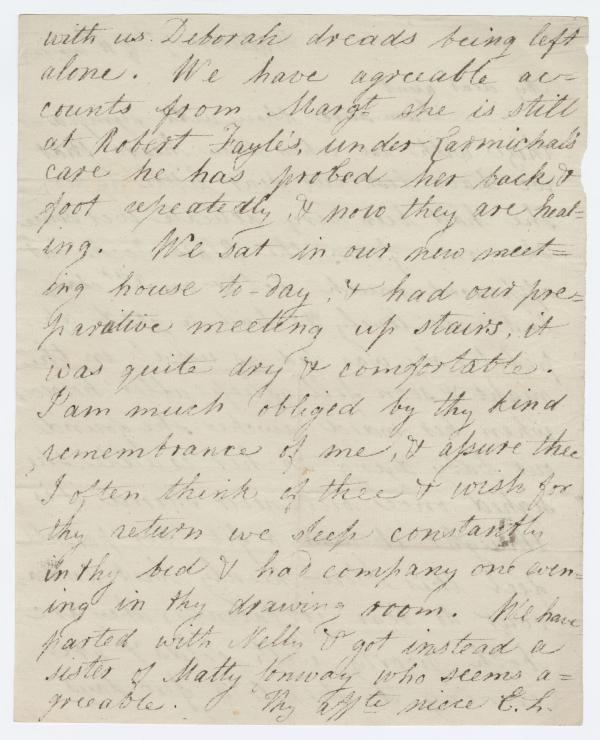 with us. Deborah dreads being left
alone. We have agreeable ac=
counts from Margt. she is still
at Robert Fayle's, under Carmichael's
care he has probed her back &
foot repeatedly, & now they are heal=
ing. We sat in our new meet=
ing house to-day, & had our pre=
parative meeting up stairs, it
was quite dry & comfortable.
I am much obliged by thy kind
remembrance of me, & assure thee
I often think of thee & wish for
thy return we sleep constantly
in thy bed & had company one even=
ing in thy drawing room. We have
parted with Nelly & got instead a
sister of Matty Conway who seems a=
greeable. Thy affte niece E. L.